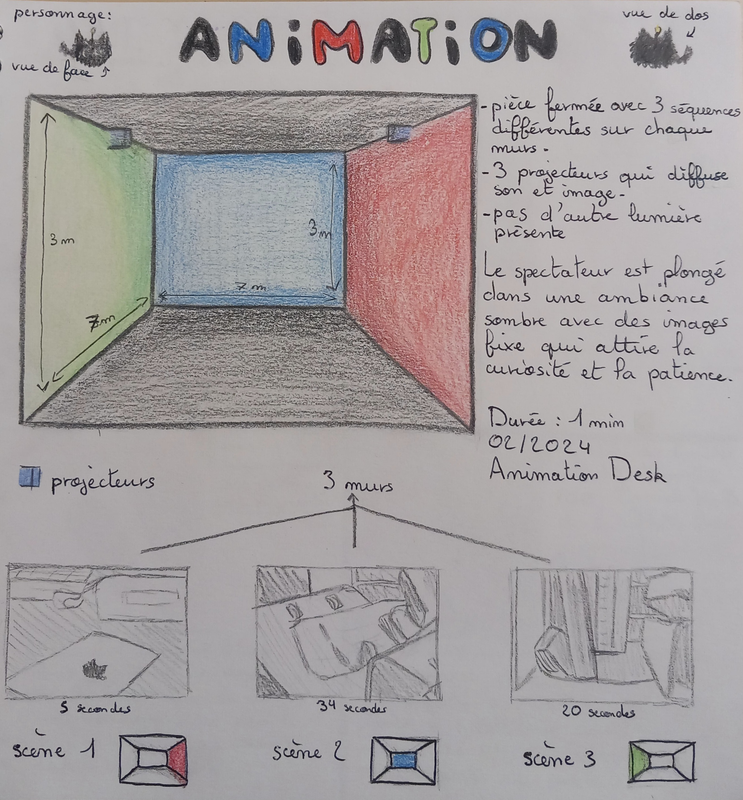 personnage:
ANiMATiON
vue de dos
vue de face
- pièce fermée avec 3 séquences
différentes sur chaque
murs.
- 3 projecteurs qui diffuse
son et image.
- pas d'autre lumière
présente
3m
3m
7m
7m
Le spectateur est plongé
dans une ambiance
sombre avec des images
fixe qui attire la
curiosité et la patience.
Durée : 1 min
02/2024
Animation Desk
projecteurs
3 murs
5 secondes
34 secondes
20 secondes
scène 1
scène 2
scène 3